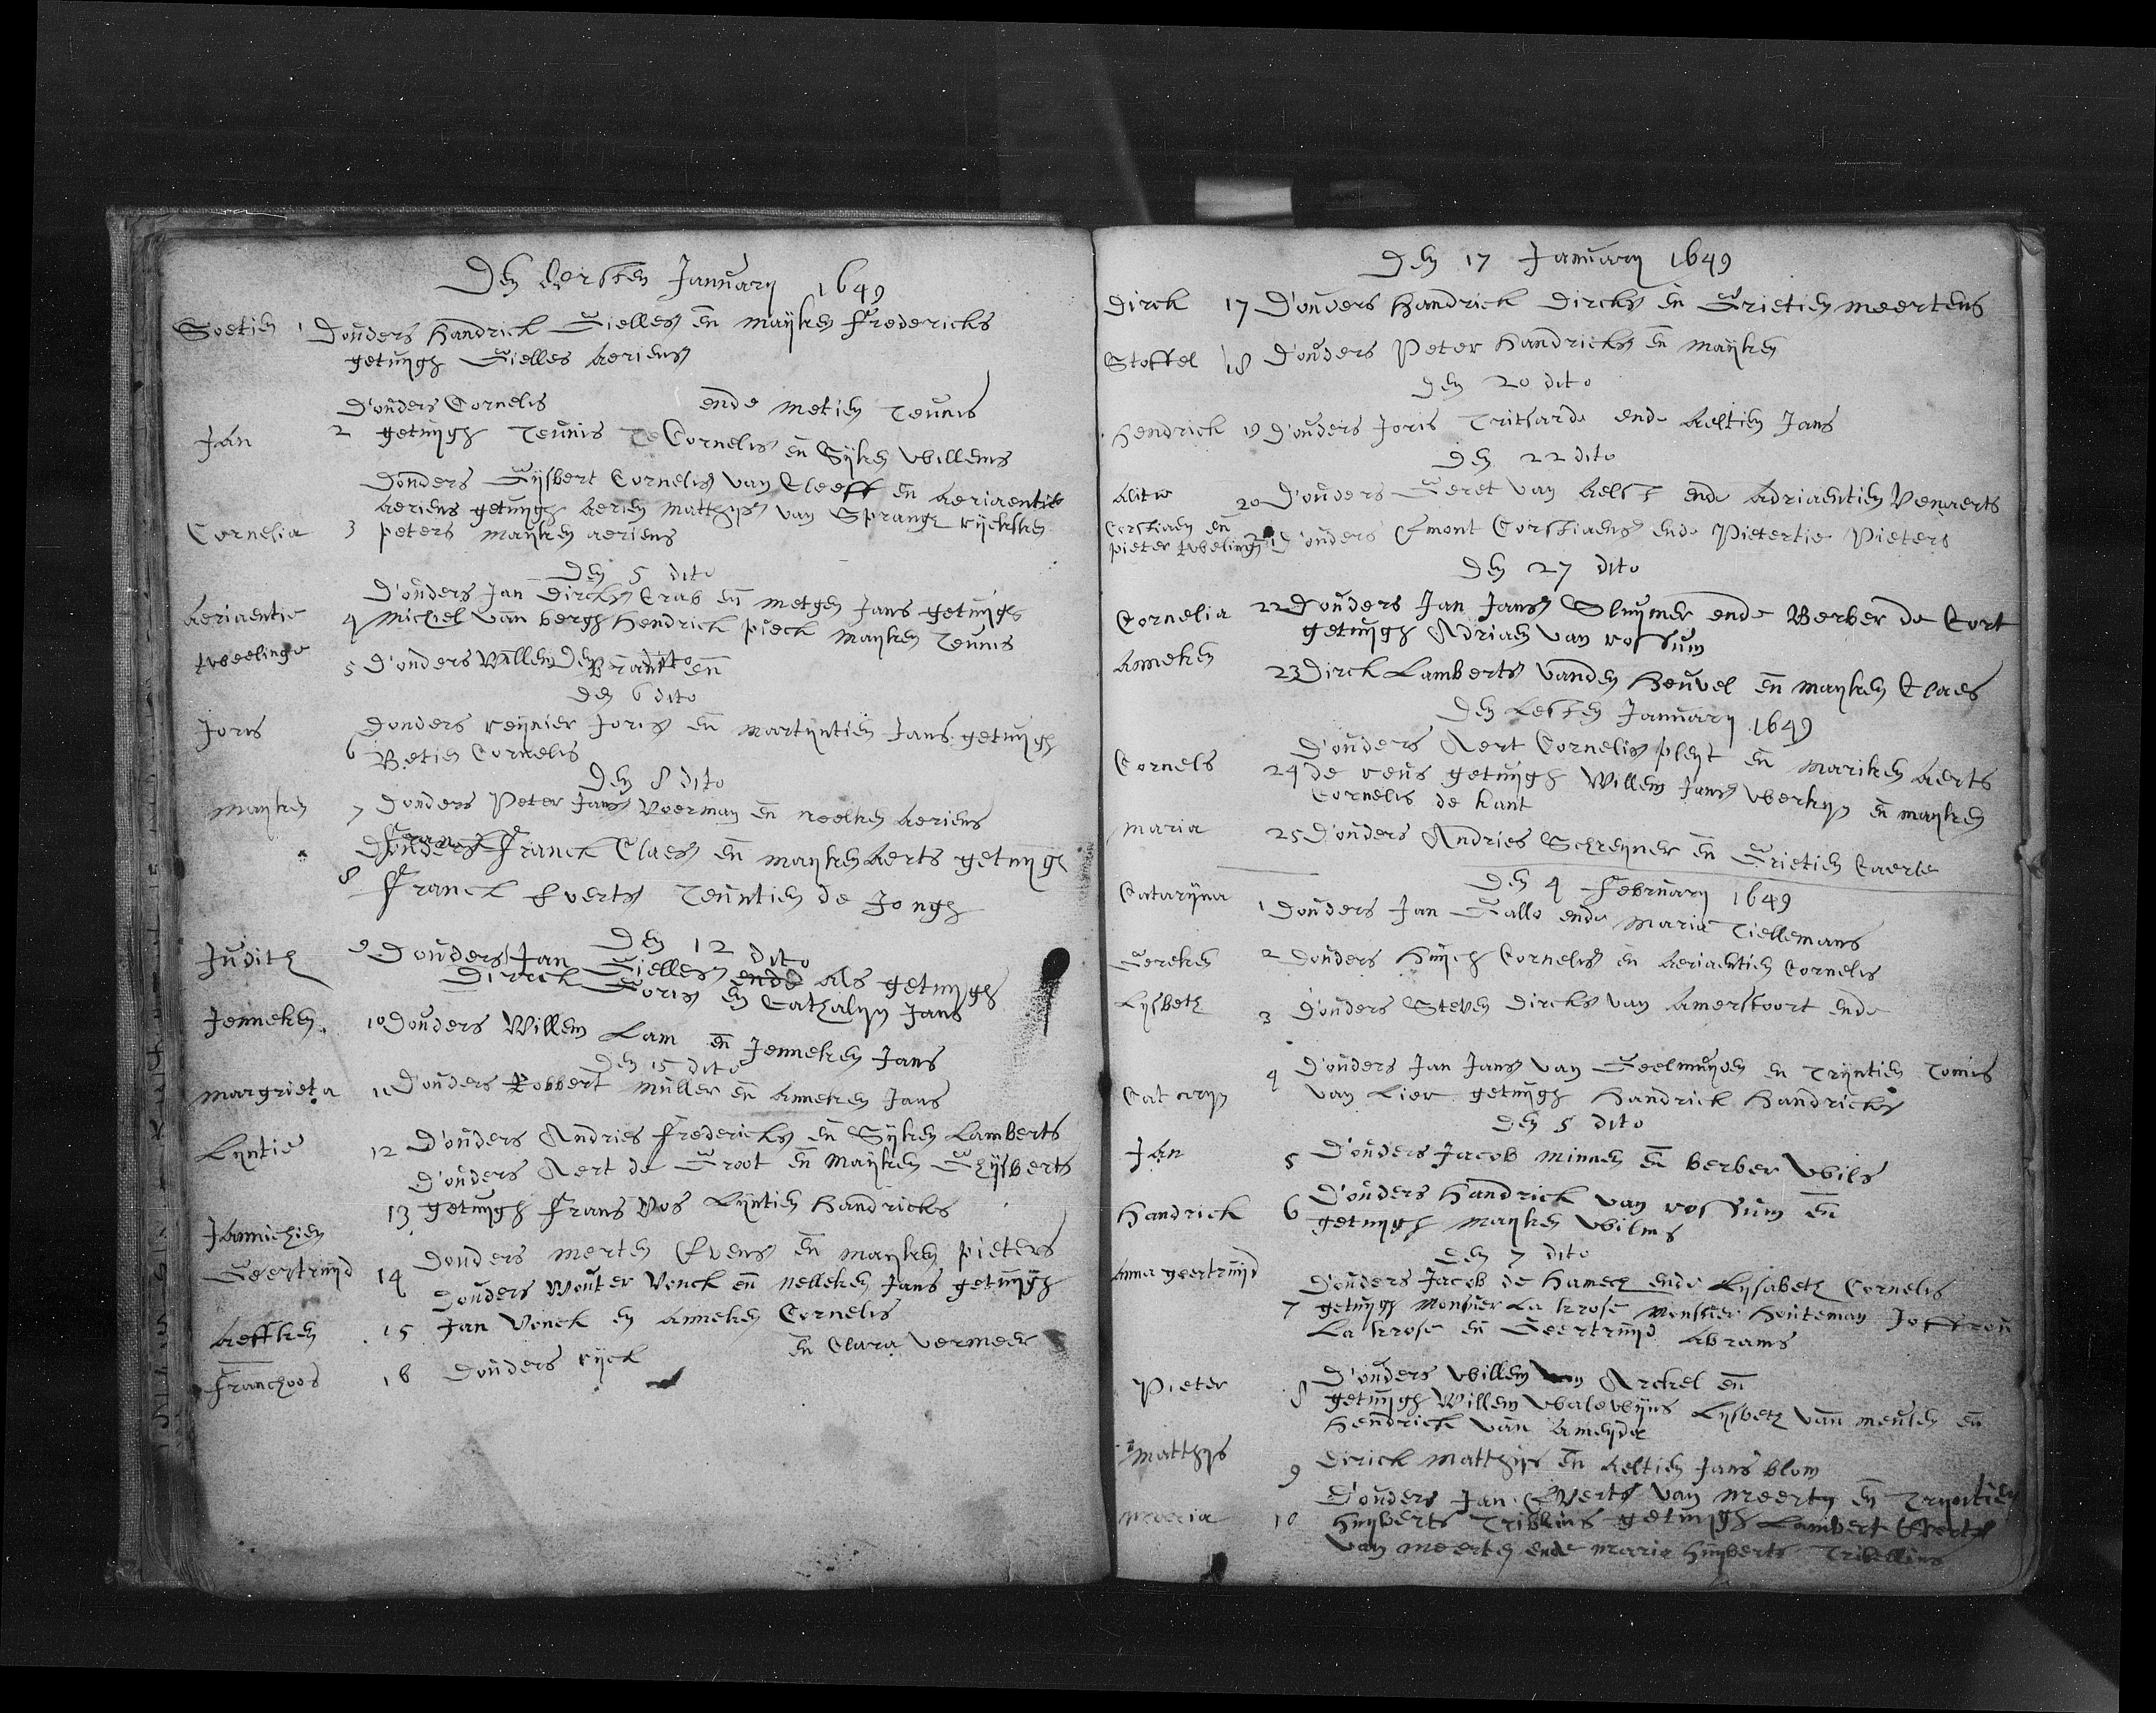 Den Eersten January 1649
Soetien 1 Douders Handrick Gielless en mayken Fredericks
getuygh Gielles Aeriens
D'ouders Cornelis ende Metien Teunis
Jan 2 getuygh Teunis Te Cornelis en Syken Willems
Douders Gysbert Corneliss van Cleeff en Aeriaentie
Aeriens getuygh Aerien Matthyss van Sprange ryckken
Cornelia 3 peters mayken aeriens
Den 5 dito
D'ouders Jan Dirckss Crab en metgen Jans getuygh
Aeriaentie 4 Michiel van bergh Hendrick pieck mayken Teunis
tweelinge 5 D'ouders Willem Brant en
Den dito
Den 6 dito
Joris Douders reynier Joriss en martyntien Jans getuygh
6 Betien Cornelis
Den 8 dito
Mayken 7 Douders Peter Janss Voerman en neelken Aeriens
Douders Franck Claess en mayken Aerts getuygh
8 Franck Evertss Teuntien de Jongh
Den 12 dito
Judith 9 Douders Jan Gielless ende als getuygh
Dirck Goriss en Cathalyn Jans
Jenneken 10 Douders Willem Lam en Jenneken Jans
Den 15 dito
margrieta 11 D'ouders Robbert Muller en Anneken Jans
Lyntie 12 D'ouders Andries Fredericks en Syken Lamberts
D'ouders Aert de Groot en Mayken Ghysberts
13 getuygh Frans Vos Lyntien Handricks
Jannichien
Geertruyd 14 Douders Merten Evenss en mayken pieters
Douders Wouter Vonck en nelleken Jans getuygh
Aeffken 15 Jan Vonck en Anneken Cornelis
Franchoos 16 Douders ryck en Clara Vermeer
Den 17 January 1649
Dirck 17 D'ouders Handrick Dirckss en Grietien Meertens
Stoffel 18 D'ouders Peter Handrickss en mayken
Den 20 dito
Hendrick 19 D'ouders Joris Tritsard ende Aeltien Jans
Den 22 dito
Alitie 20 D'ouders Geret van Aelst ende Adriaentien Venaerts
Corstiaen en
pieter tweelingen 21 D'ouders Emont Corstiaenss ende Pietertie Pieters
Den 27 dito
Cornelia 22 Douders Jan Janss Sluymer ende Berber de Cort
getuygh Adriaen van rossum
Anneken 23 Dirck Lambertss vanden Heuvel en mayken Claes
Den Lesten January 1649
D'ouders Aert Corneliss pleyt en Mariken Aerts
Cornels 24 de reus getuygh Willem Janss verkyp en mayken
Cornelis de kant
Maria 25 D'ouders Andries Schreyner en Grietien Caerle
Den 4 February 1649
Cataryna 1 Douders Jan Gallo ende Maria Tiellemans
Gereken 2 Douders Huych Cornelis en Aeriaentien Cornelis
Lysbeth 3 D'ouders Steven Dirckss van Amersfoort ende
D'ouders Jan Janss van Geelmuyden en Tryntien Tonis
Cataryn 4 van Lier getuygh Handrick Handrickss
Den 5 dito
Jan 5 D'ouders Jacob Minnen en berber Wils
Handrick 6 D'ouders Handrick van rossum en
getuygh mayken Wilms
Den 7 dito
Anna geertruyd D'ouders Jacob de Hamech ende Lysabeth Cornelis
7 getuygh Monsuer La krose Monsuer Houteman Joffrou
La krose en Geertruyd Abrams
Pieter D'ouders Willem van Arckel en
8 getuygh Willem Walewyns Lysbeth van meusen en
Hendrick van Ameyde
Matthys 9 Dirick Matthys en Aeltien Jans blom
D'ouders Jan Evertss van Meerten en Tryntien
Maria 10 Huyberts getuygh Lambert Evertss
van Meerten ende Maria Huyberts